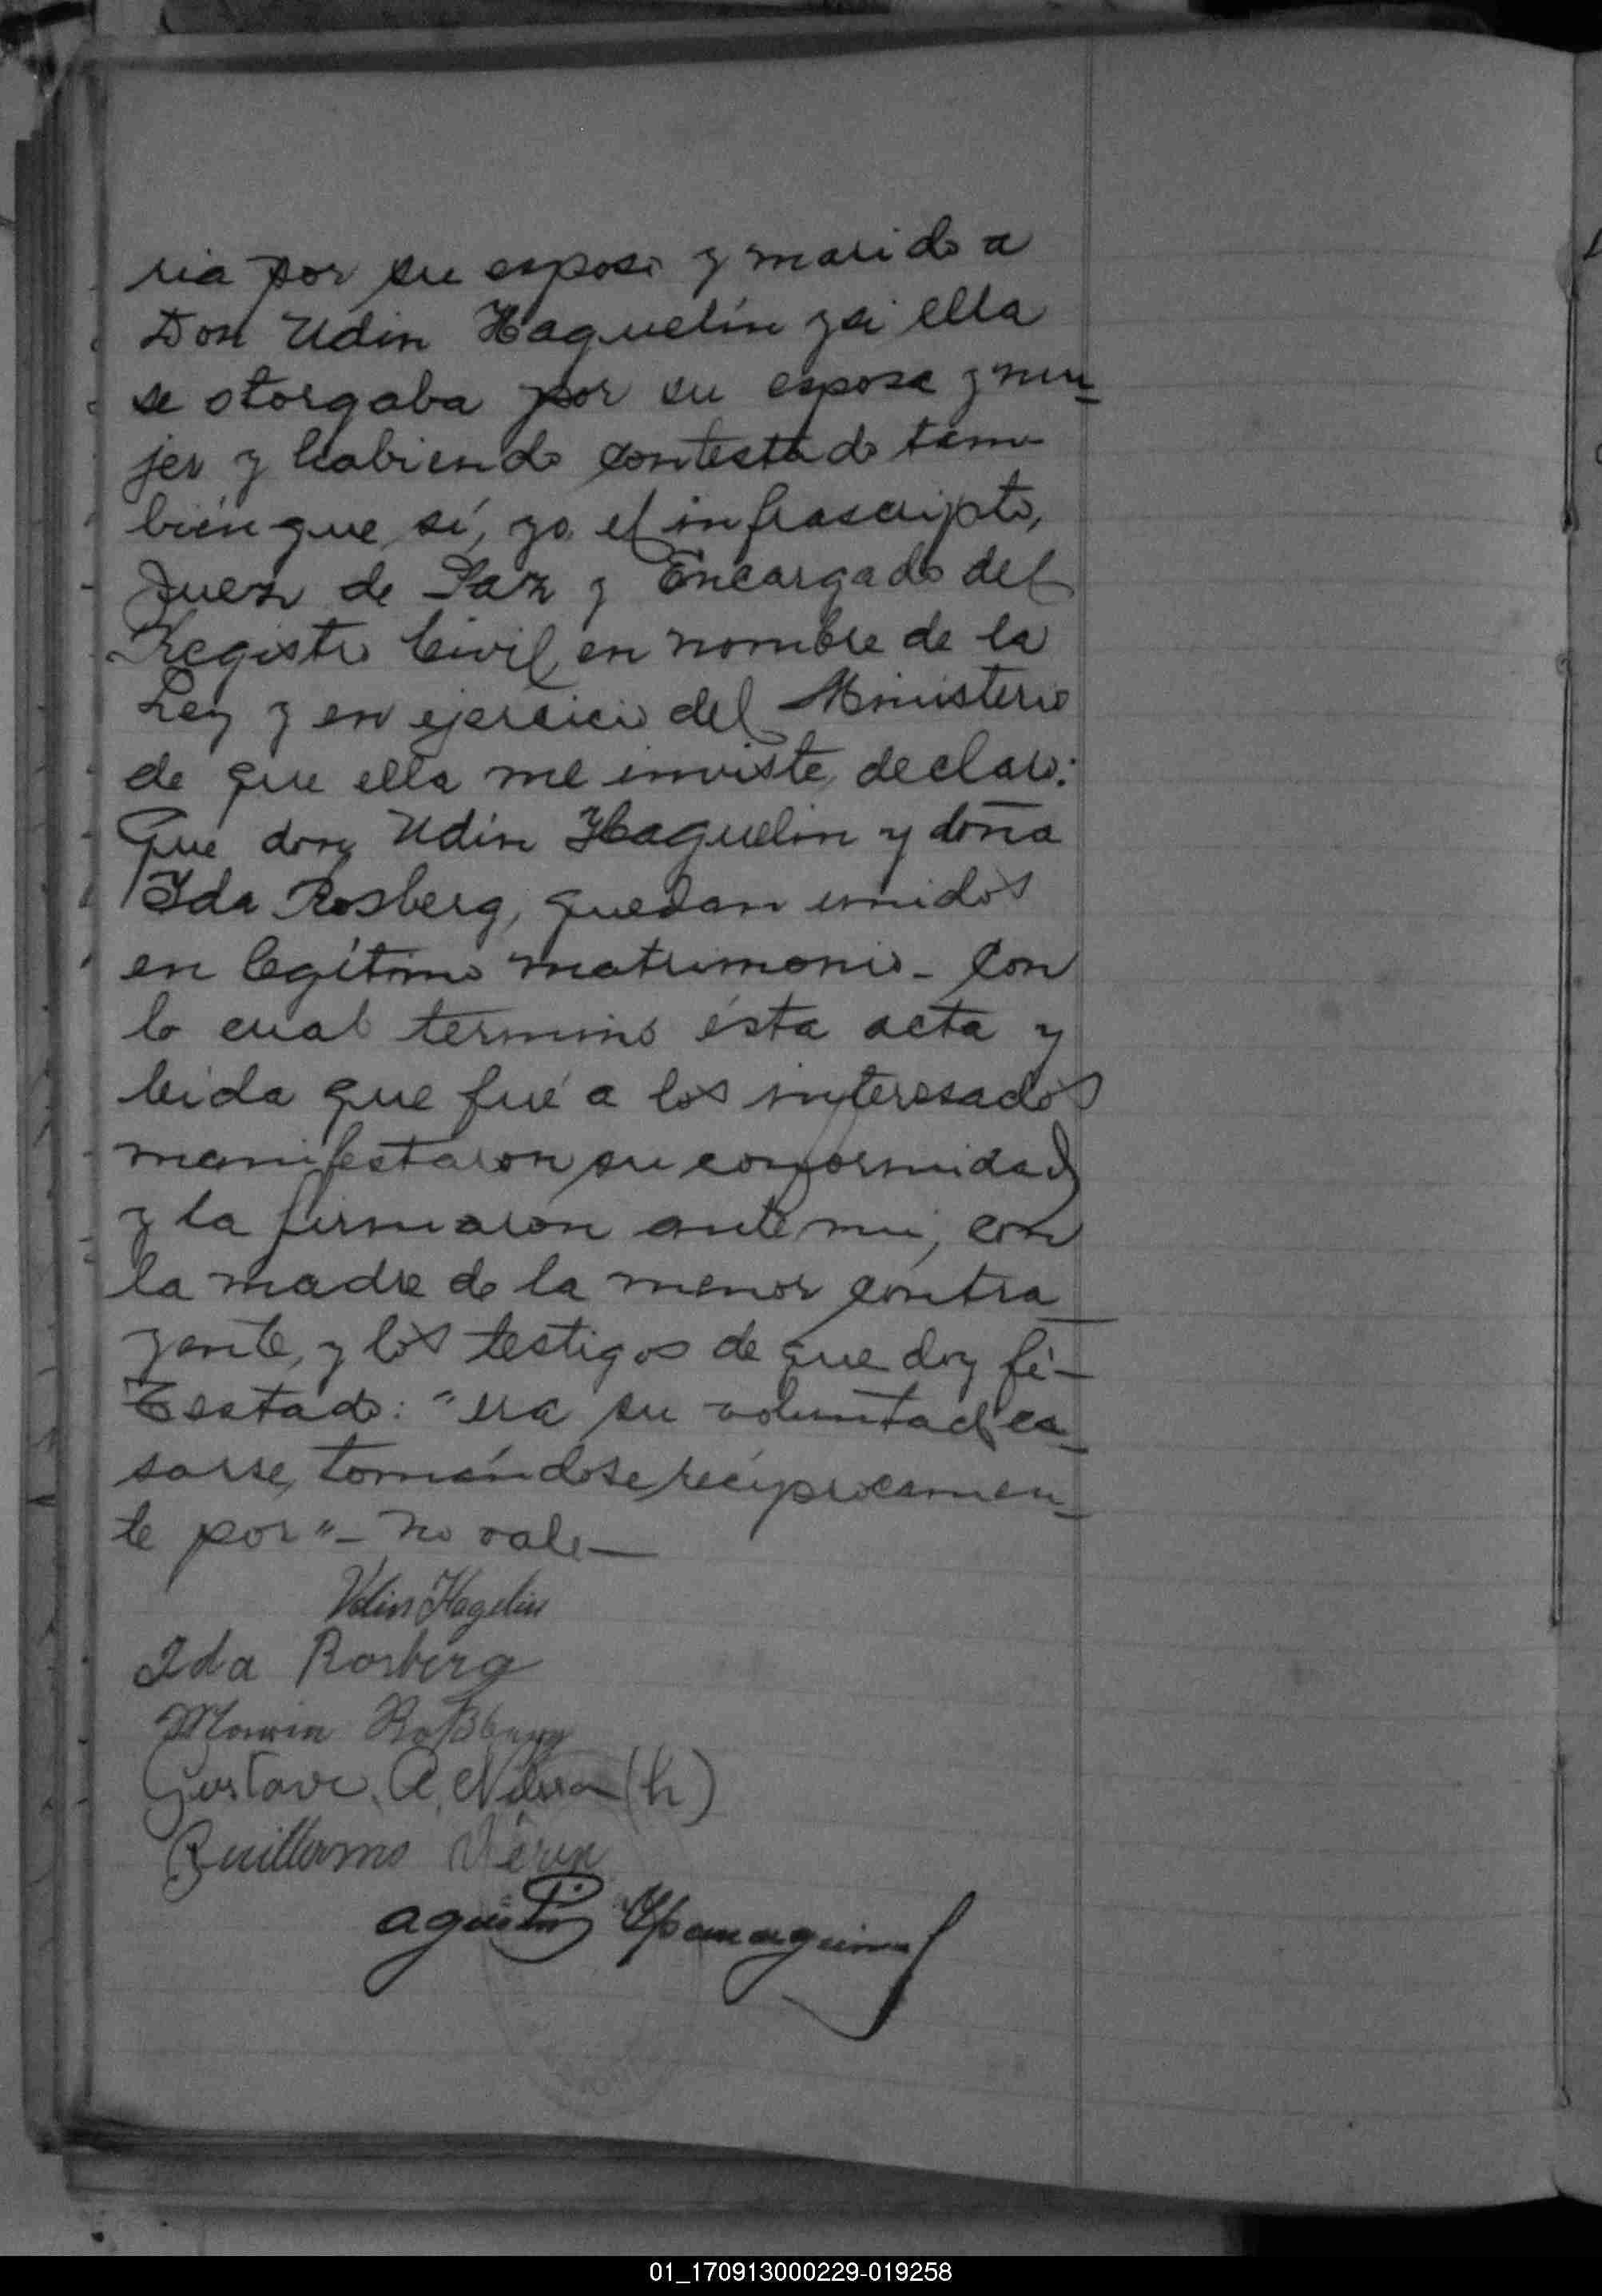 ria por su esposo y marido a
Don Udin Haguelin y a ella
se otorgaba por su esposa y mu-
jer y habiendo contestado tam-
bien que sí, yo el infrascripto,
Juez de Paz y Encargado del
Registro Civil, en nombre de la
Ley y en ejercicio del Ministerio
de que ella me inviste, declaro:
Que don Udin Haguelin y doña
Ida Rosberg, quedan unidos
en legítimo matrimonio - Con
lo cual terminó ésta acta y
leida que fué a los interesados
manifestaron su conformidad
y la firmaron ante mi, con
la madre de la menor contra-
yente, y los testigos de que doy fé -
Testado: "era su voluntad ca-
sarse, tomándose reciprocamen-
te por" - no vale -
Udin Hagelin
Ida Rosberg
Gustavo A. Nilsson (h)
Guillermo
Agustin
01_170913000229-019258